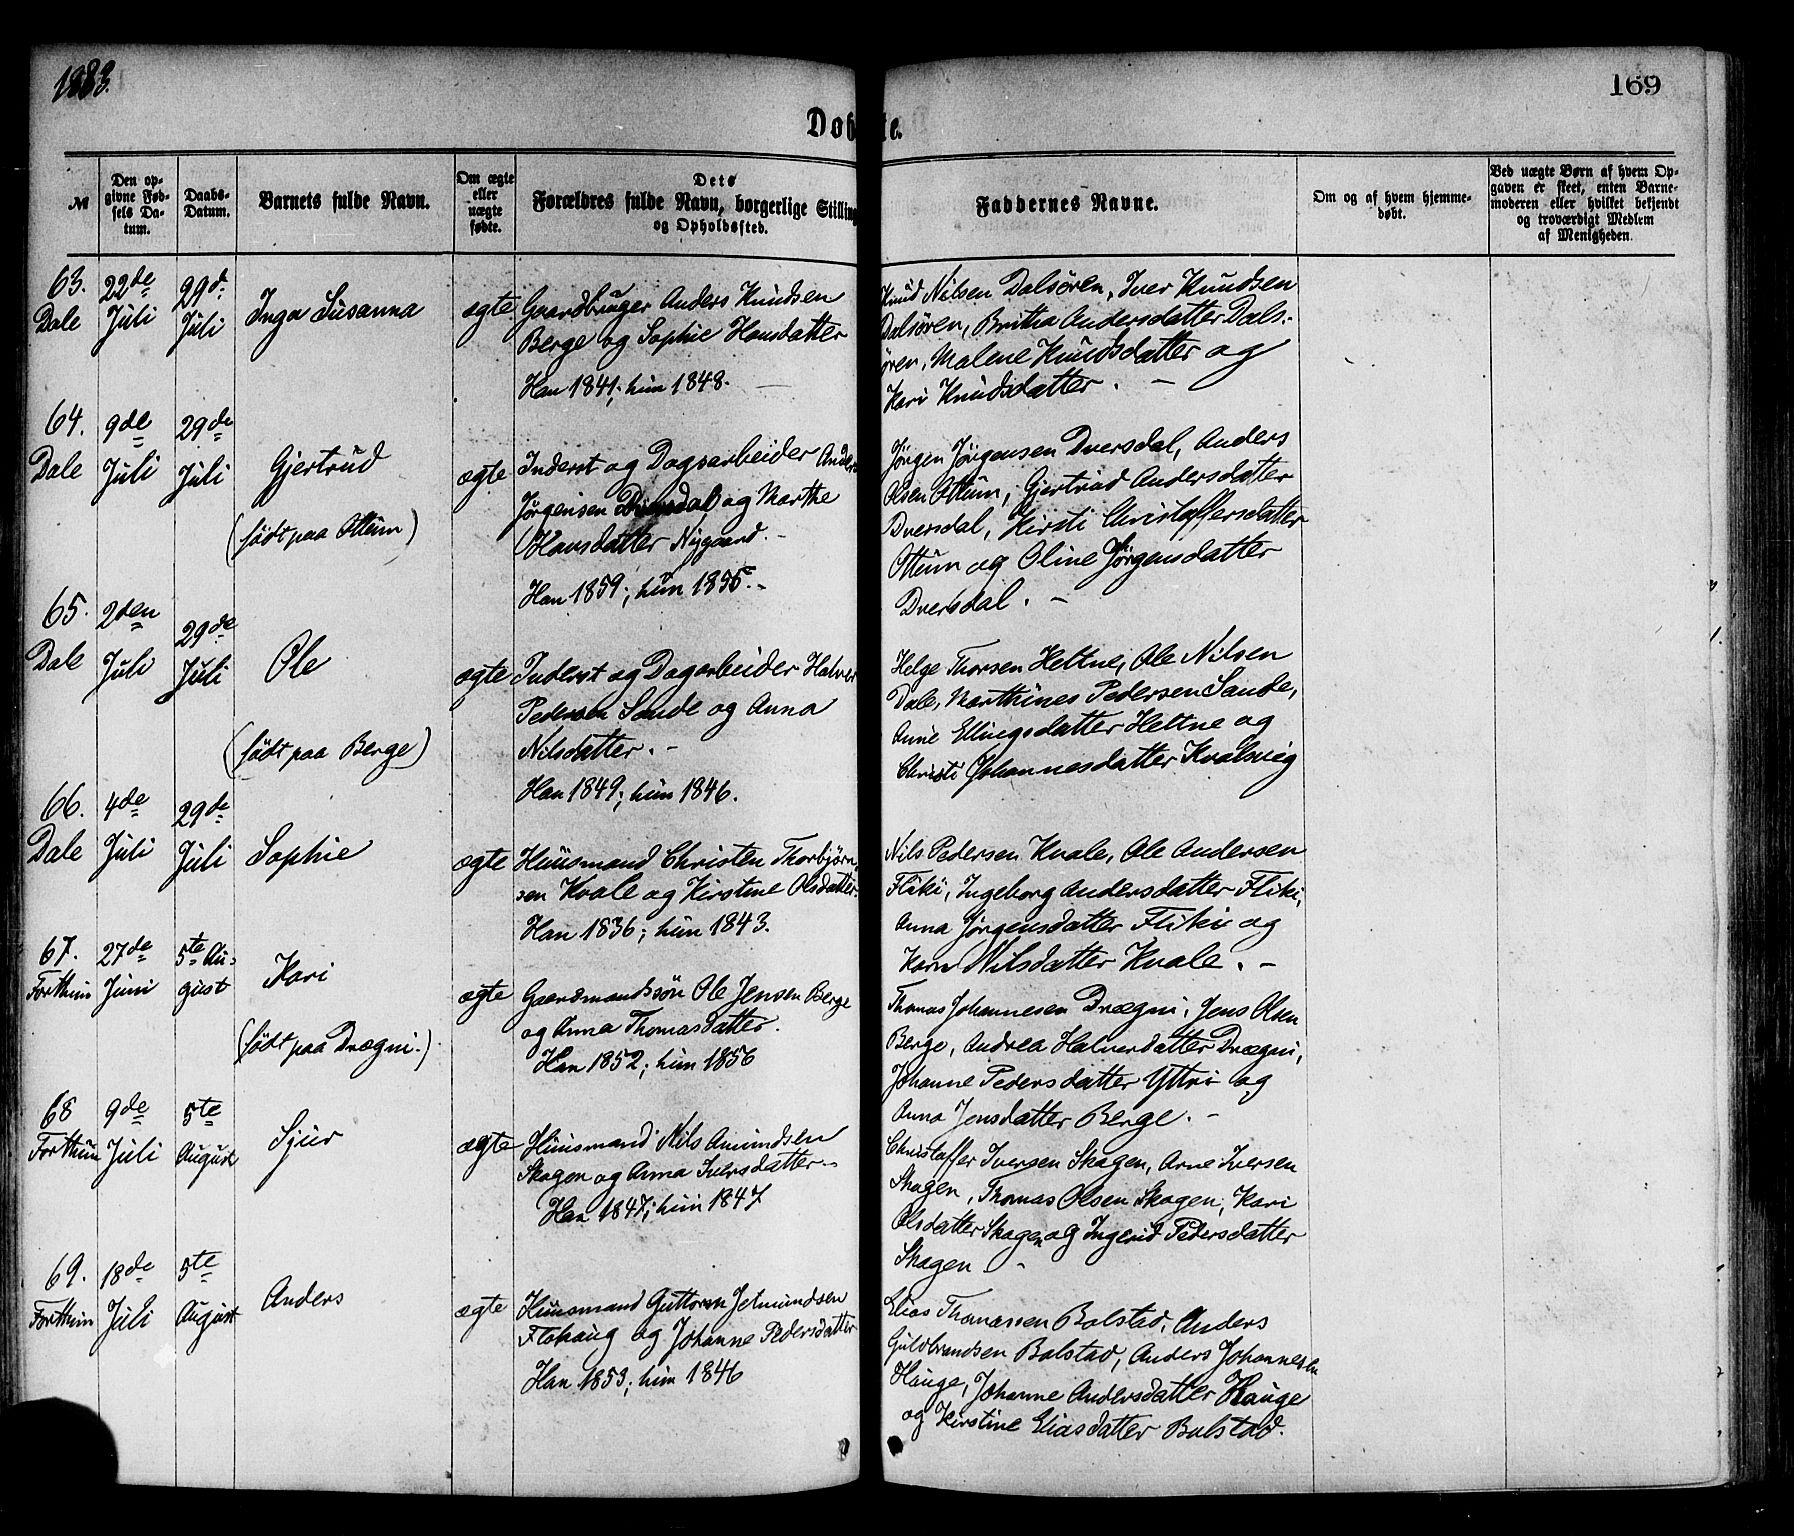 1883.
169
Døbte.
№
Den op-
givne Fød-
sels Da-
tum.
Daabs-
Datum.
Barnets fulde Navn.
Om ægte
eller
uægte
fødte.
Dets
Forældres fulde Navn, borgerlige Stilling
og Opholdssted.
Faddernes Navne.
Om og af hvem hjemme-
døbt.
Ved uægte Børn af hvem Op-
gaven er skeet, enten Barne-
moderen eller hvilket bekjendt
og troværdigt Medlem
af Menigheden.
63.
Dale
22de
Juli
29de
Juli
Inga Susanna
ægte
Gaardbruger Anders Knudsen
Berge og Sophie Hansdatter
Han 1841; hun 1848.
Knud Nilsen Dalsøren, Iver Knudsen
Dalsøren, Britha Andersdatter Dals-
øren, Malene Knudsdatter og
Kari Knudsdatter.
64.
Dale
9de
Juli
29de
Juli
Gjertrud
(født paa Ottum)
ægte
Inderst og Dagsarbeider Anders
Jørgensen Dversdal og Marthe
Hansdatter Nygaard.
Han 1859; hun 1855.
Jørgen Jørgensen Dversdal, Anders
Olsen Ottum, Gjertrud Andersdatter
Dversdal, Kirsti Christaffersdatter
Ottum og Oline Jørgensdatter
Dversdal.
65.
Dale
2den
Juli
29de
Juli
Ole
(født paa Berge)
ægte
Inderst og Dagarbeider Halvor
Pedersen Sande og Anna
Nilsdatter.
Han 1849; hun 1846.
Helge Thorsen Heltne, Ole Nilsen
Dale, Marthines Pedersen Sande,
Anne Ellingsdatter Heltne og
Christi Johannesdatter Kvalsvig
66.
Dale
4de
Juli
29de
Juli
Sophie
ægte
Huusmand Christen Thorbjørn-
sen Kvale og Kirstine Olsdatter.
Han 1836; hun 1843.
Nils Pedersen Kvale, Ole Andersen
Fliki, Ingeborg Andersdatter Fliki,
Anna Jørgensdatter Fliki og
Karn Nilsdatter Kvale.
67.
Forthun
27de
Juni
5te Au-
gust
Kari
(født paa Drægni.)
ægte
Gaardmandssøn Ole Jensen Berge
og Anna Thomasdatter.
Han 1852; hun 1856
Thomas Johannesen Drægni, Jens Olsen
Berge, Andrea Halverdatter Drægni,
Johanne Pedersdatter Yttri og
Anna Jensdatter Berge.
68
Forthun
9de
Juli
5te
August
Sjur
ægte
Huusmand Nils Amundsen
Skagen og Anna Iversdatter.
Han 1847; hun 1847
Christaffer Iversen Skagen, Arne Iversen
Skagen, Thomas Olsen Skagen, Kari
Olsdatter Skagen og Ingerid Pedersdatter
Skagen
69.
Forthun
18de
Juli
5te
August
Anders
ægte
Huusmand Guttorm Jetmundsen
Flohaug og Johanne Pedersdatter
Han 1853; hun 1846
Elias Thomassen Bolstad, Anders
Guldbrandsen Bolstad, Anders Johannesen
Hauge, Johanne Andersdatter Hauge
og Kirstine Eliasdatter Bolstad.